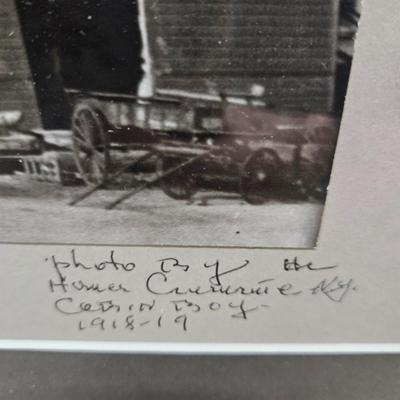 photo By the
Homer N.Y.
Cabin Boy-
1918-19